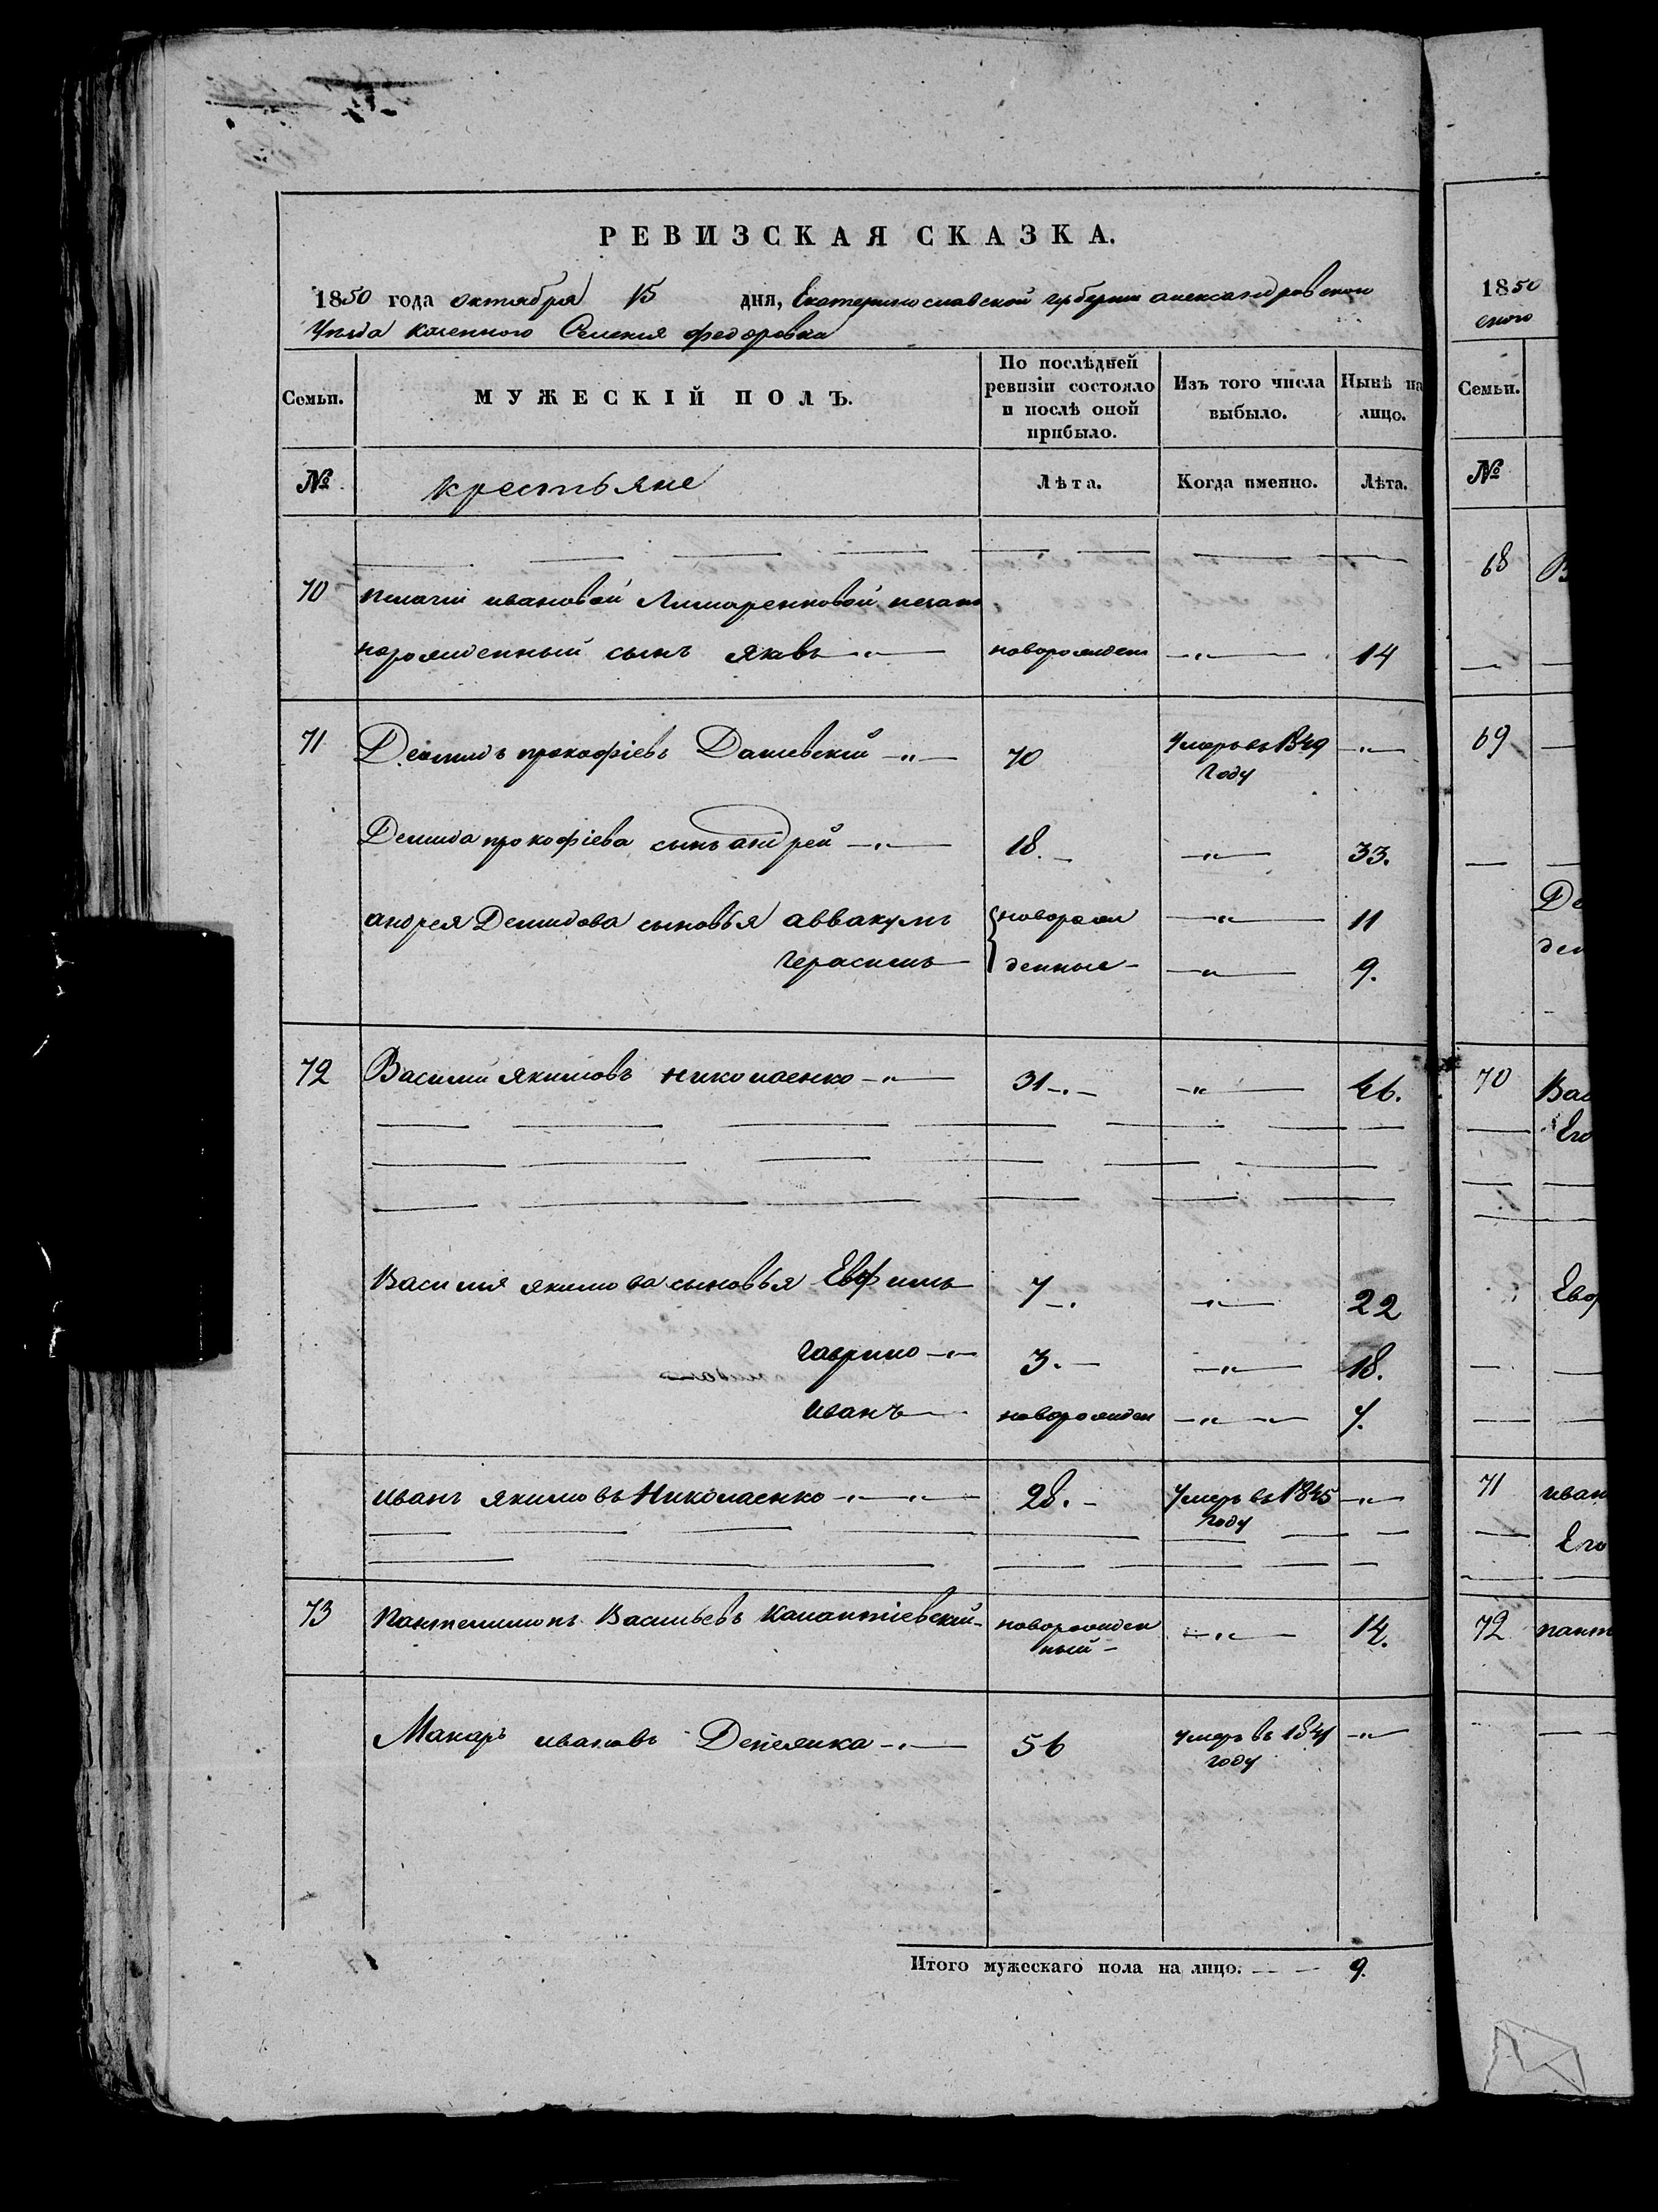 РЕВИЗСКАЯ СКАЗКА.
1850 года октября 15 дня, Екатеринославской губернии александровскои
Уезда казенного Селения федоровка
Семьи. МУЖЕСКІЙ ПОЛЪ. По послѣдней ревизіи состояло и послѣ оной прибыло. Изъ того числа выбыло. Нынѣ на лицо.
№ крестьяне Лѣта. Когда именно. Лѣта.
70 пелагии ивановой незако
норожденный сынъ яковъ новорожден 14
71 Демидъ прокофіевъ Дашевскій 70 Умеръ въ 1849 —
году
Демида прокофіева сынъ андрей 18. 33.
андрея Демидова сыновья аввакумъ новорож 11
герасимъ денные 9.
72 Василий якимовъ николаенко 31 46.
Василия якимова сыновья Евфимъ 7 22
гаврило 3. 18.
иванъ новорожден 7.
иванъ якимовъ николаенко 28. Умеръ въ 1845
году
73 пантелимонъ Васильевъ новорожден 14.
ный
Макаръ ивановъ 56 умеръ въ 1841
году
Итого мужескаго пола на лицо. 9.
1850
ского
Семьи.
№
68
69
Де
ден
70 Вас
Его
Евф
71 иван
Его
72 пант